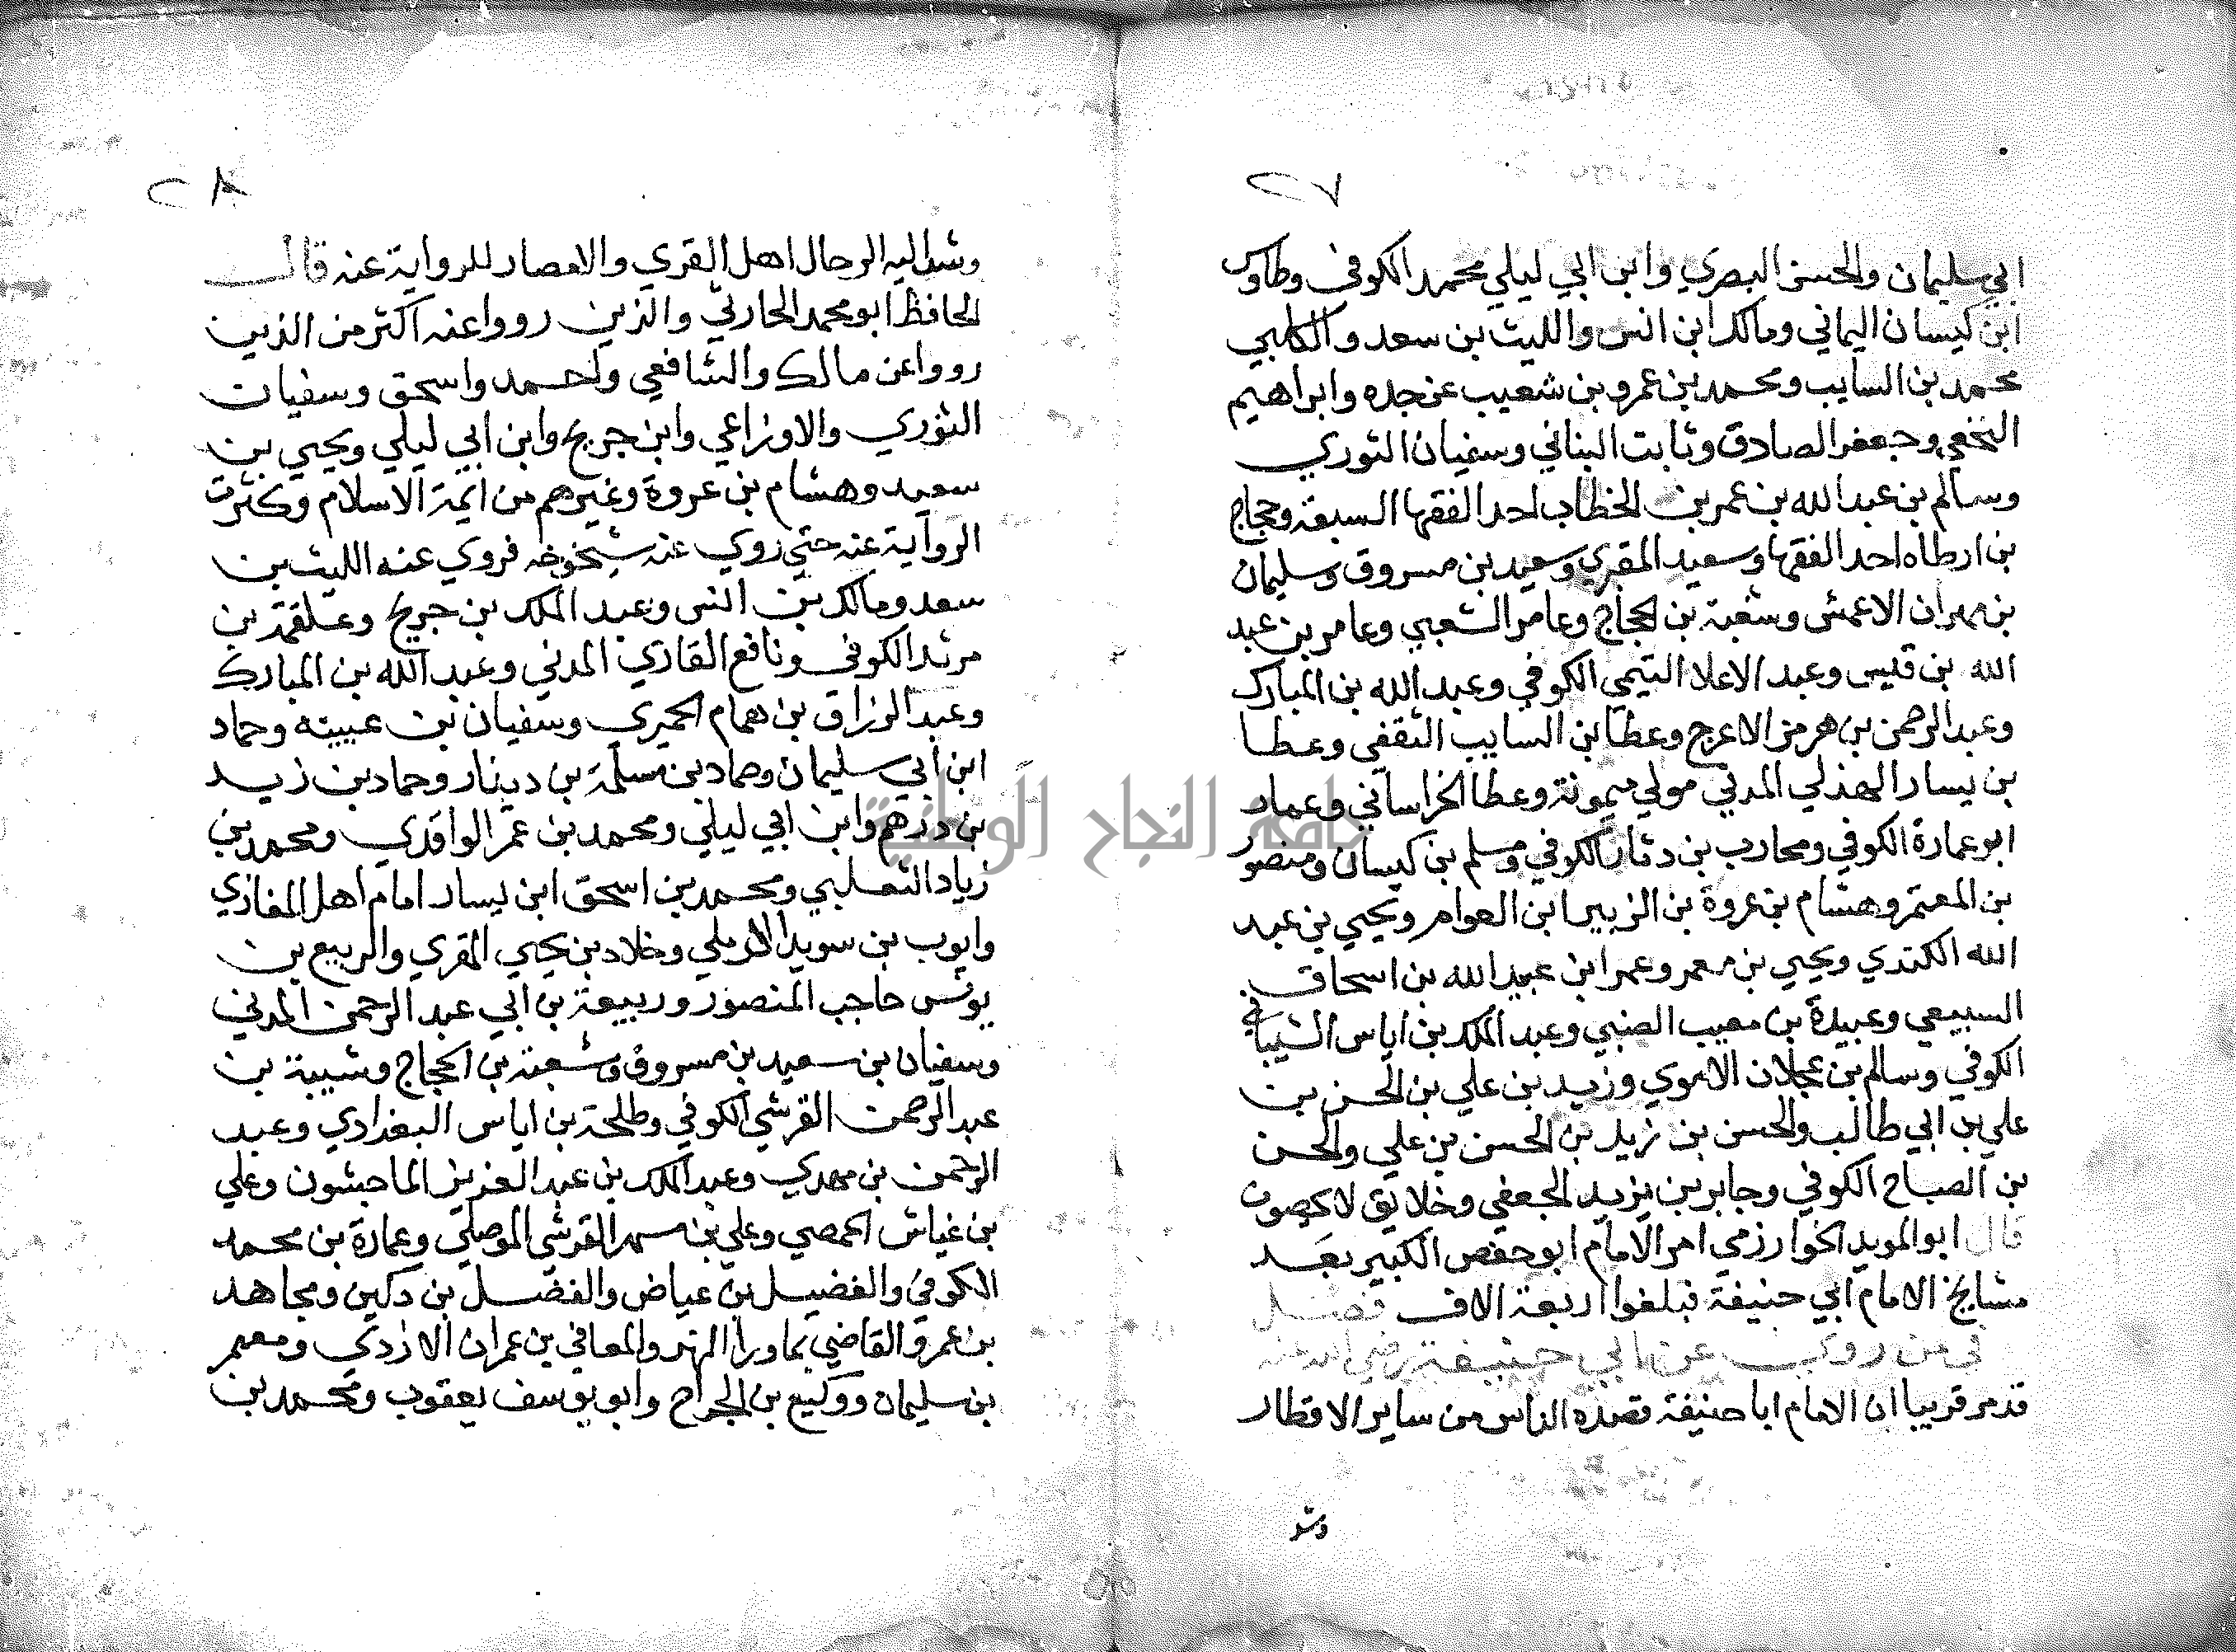 ٢٧
ابي سليمان والحسن البصري وابن ابي ليلي محمد الكوفي وطاوس
ابن كيسان اليماني ومالك ابن انس والليث بن سعد والكلبي
محمد بن السايب ومحمد بن عمرو بن شعيب عن جده وابراهيم
النخعي وجعفر الصادق وثابت البناني وسفيان الثوري
وسالم بن عبد الله بن عمر بن الخطاب احد الفقها السبعة وحجاج
بن ارطاه احد الفقها وسعيد المقبري وسعيد بن مسروق وسليمان
بن مهران الاعمش وشعبة بن الحجاج وعامر الشعبي وعامر بن عبد
الله بن قيس وعبد الاعلا التيمي الكوفي وعبد الله بن المبارك
وعبد الرحمن بن هرمز الاعرج وعطا بن السايب الثقفي وعطا
بن يسار الهذلي المدني مولي ميمونة وعطا الخراساني وعمار
ابو عمارة الكوفي ومحارب بن دثار الكوفي ومسلم بن كيسان ومنصور
بن المعتمر وهشام بن عروة بن الزبير ابن العوام ويحيي بن عبد
الله الكندي ويحيي بن معمر وعمر ابن عبد الله بن اسحاق
السبيعي وعبيدة بن معيب الضبي وعبد الملك بن اياس الشيباني
الكوفي وسالم بن عجلان الاموي وزيد بن علي بن الحسن بن
علي بن ابي طالب والحسن بن زيد بن الحسن بن علي والحسن
بن الصباح الكوفي وجابر بن يزيد الجعفي وخلايق لا يحصون
قال ابو المويد الخوارزمي امر الامام ابو حفص الكبير بعد
مشايخ الامام ابي حنيفة فبلغوا اربعة الاف فصل
في من روي عن ابي حنيفة رضي الله عنه
قد مر قريبا ان الامام ابا حنيفة قصده الناس من ساير الاقطار
وشد
٢٨
وشد اليه الرحال اهل القري والامصار للرواية عنه قال
الحافظ ابو محمد الحارثي والذين رووا عنه اكثر من الذين
رووا عن مالك والشافعي واحمد واسحق وسفيان
الثوري والاوزاعي وابن جريج وابن ابي ليلي ويحيي بن
سعيد وهشام بن عروة وغيرهم من ايمة الاسلام وكثرت
الرواية عنه حتي روي عنه شيخوخه فروي عنه الليث بن
سعد ومالك بن انس وعبد الملك بن جريج وعلقمة بن
مرثد الكوفي ونافع القاري المدني وعبد الله بن المبارك
وعبد الرزاق بن همام الحميري وسفيان بن عيينه وحماد
ابن ابي سليمان وحماد بن سلمة بن دينار وحماد بن زيد
بن درهم وابن ابي ليلي ومحمد بن عمر الواقدي ومحمد بن
زياد الثعلبي ومحمد بن اسحق ابن يسار امام اهل المغازي
وايوب بن سويد الارملي وخلاد بن يحيي المقري والربيع بن
يونس حاجب المنصور وربيعة بن ابي عبد الرحمن المدني
وسفيان بن سعيد بن مسروق وشعبة بن الحجاج وشيبة بن
عبد الرحمن القرشي الكوفي وطلحة بن اياس البغدادي وعبد
الرحمن بن مهدي وعبد الملك بن عبد العزيز الماجشون وعلي
بن عياش الحمصي وعلي بن مسهر القرشي الموصلي وعمارة بن محمد
الكوفي والفضيل بن عياض والفضل بن دكين ومجاهد
بن عمرو القاضي بماورا النهر والمعافي بن عمران الازدي ومعمر
بن سليمان ووكيع بن الجراح وابو يوسف يعقوب ومحمد بن
جامعة النجاح الوطنية